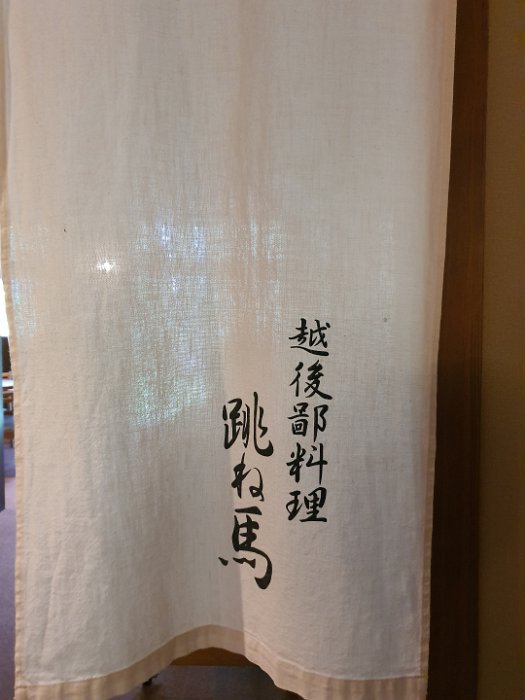 越後鄙料理
跳ね馬